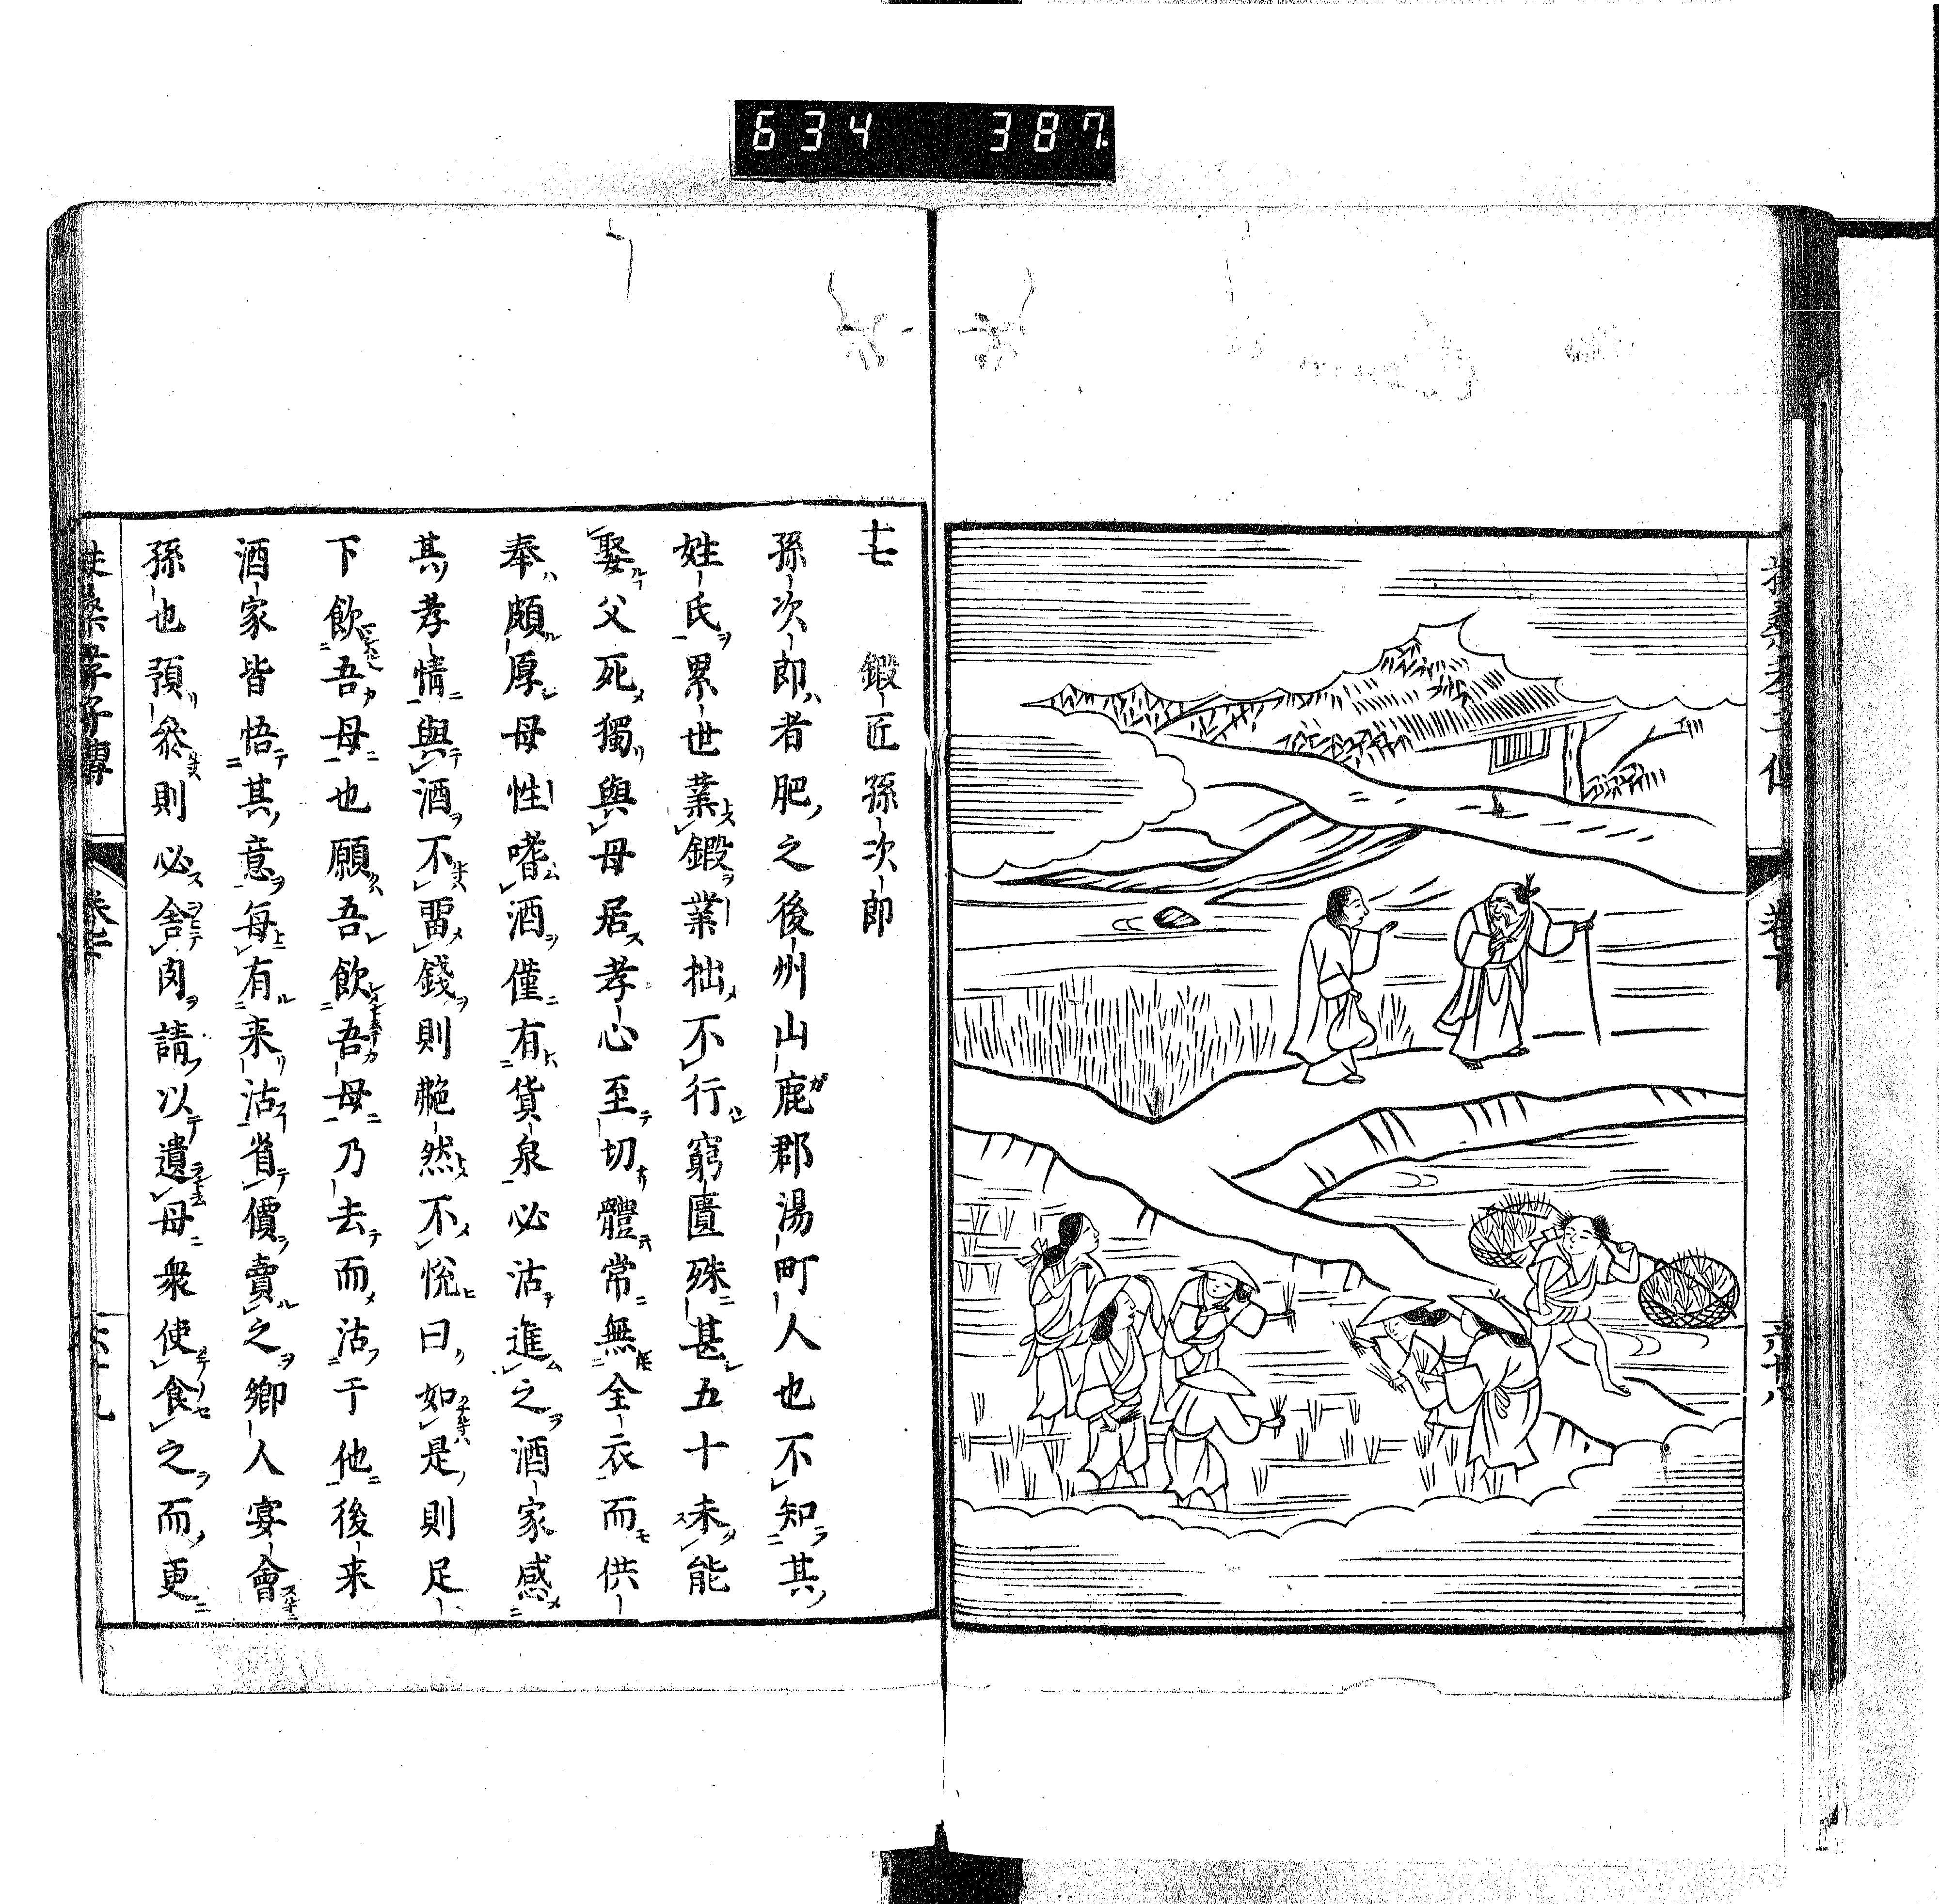 634 387.
扶桑孝子傳
卷下
六十八
十七 鍛匠孫次郎
孫次郎者肥之後州山鹿郡湯町人也不知其
姓氏累世業鍛業拙不行窮匱殊甚五十未能
娶父死獨與母居孝心至切體常無全衣而供
奉頗厚母性嗜酒僅有貨泉必沽進之酒家感
其孝情與酒不畱錢則艴然不悅曰如是則足
下飲吾母也願吾飲吾母乃去而沽于他後来
酒家皆悟其意每有来沽省價賣之鄉人宴會
孫也預叅則必舍肉請以遺母衆使食之而更
扶桑孝子傳
卷下
六十九